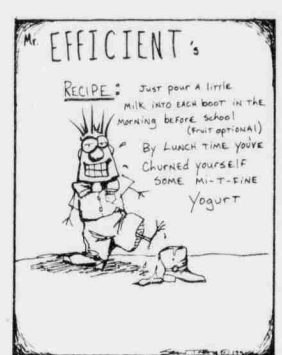 Mr. EFFICIENT's
RECIPE: Just pour a little
milk into each boot in the
morning before school
(fruit optional)
By lunch time you've
churned yourself
some mi-t-fine
Yogurt